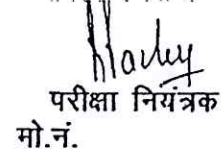 परीक्षा नियंत्रक
मो.नं.